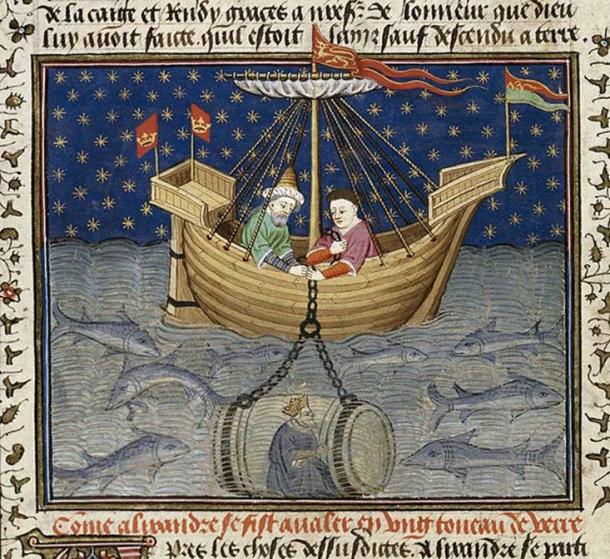 de la caige et Rendy graces a nre sr De lonneur que dieu
luy auoit faicte. quil estoit sayn & sauf descendu a terre.
Come alixandre se fist aualer en vng toneau de verre
Apres les choses dessusdictes. Alixandre se parti